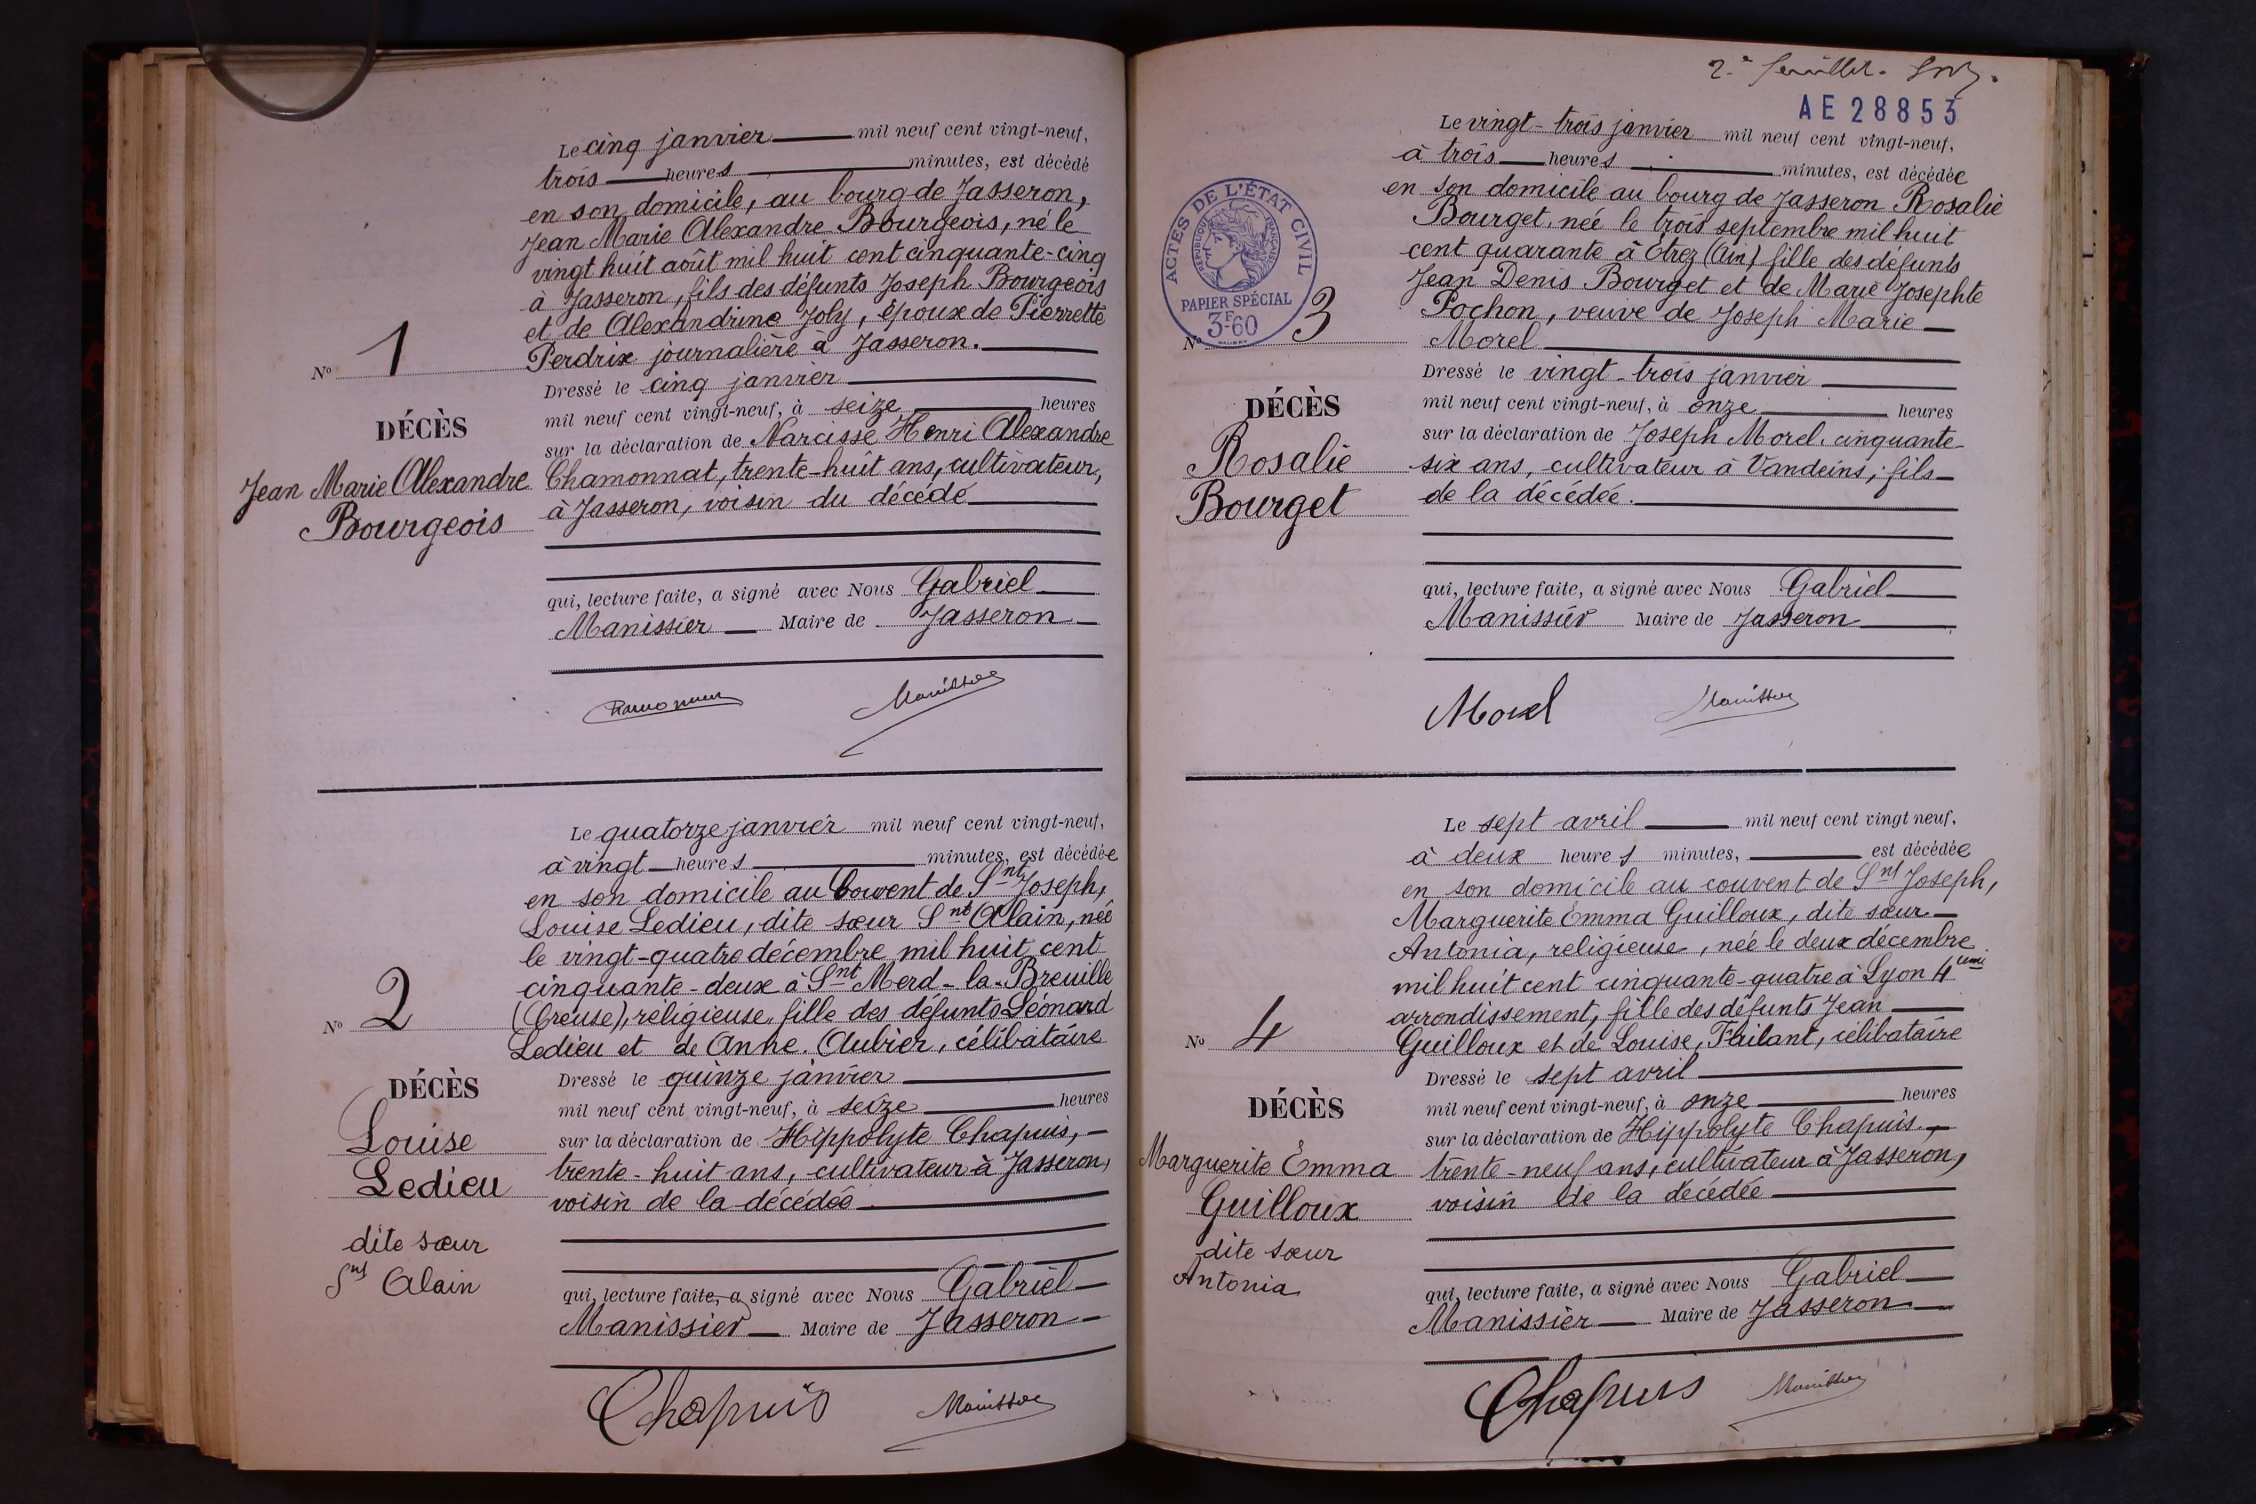 Le cinq janvier mil neuf cent vingt-neuf,
trois heures minutes, est décédé
en son domicile, au bourg de Jasseron,
Jean Marie Alexandre Bourgeois, né le
vingt huit août mil huit cent cinquante-cinq
à Jasseron, fils des défunts Joseph Bourgeois
et de Alexandrine Joly, époux de Pierrette
Perdrix journalière à Jasseron.
Nº 1
Dressé le cinq janvier
mil neuf cent vingt-neuf, à seize heures
sur la déclaration de Narcisse Henri Alexandre
Chamonnat, trente-huit ans, cultivateur,
à Jasseron, voisin du décédé
DÉCÈS
Jean Marie Alexandre
Bourgeois
qui, lecture faite, a signé avec Nous Gabriel
Manissier Maire de Jasseron
Manissier
Le quatorze janvier mil neuf cent vingt-neuf,
à vingt heures minutes, est décédée
en son domicile au Couvent de Snt Joseph,
Louise Ledieu, dite sœur Snt Alain, née
le vingt-quatre décembre mil huit cent
cinquante-deux à Snt Merd-la-Breuille
(Creuse), religieuse, fille des défunts Léonard
Ledieu et de Anne Aubier, célibataire
Nº 2
Dressé le quinze janvier
mil neuf cent vingt-neuf, à seize heures
sur la déclaration de Hippolyte Chapuis,
trente-huit ans, cultivateur à Jasseron,
voisin de la décédée
DÉCÈS
Louise
Ledieu
dite sœur
Snt Alain
qui, lecture faite, a signé avec Nous Gabriel
Manissier Maire de Jasseron
Chapuis Manissier
2e feuillet.
AE 28853
ACTES DE L'ÉTAT CIVIL
RÉPUBLIQUE FRANÇAISE
PAPIER SPÉCIAL
3F.60
Le vingt-trois janvier mil neuf cent vingt-neuf,
à trois heures minutes, est décédée
en son domicile au bourg de Jasseron Rosalie
Bourget, née le trois septembre mil huit
cent quarante à Étrez (Ain) fille des défunts
Jean Denis Bourget et de Marie Josephte
Pochon, veuve de Joseph Marie
Morel
Nº 3
Dressé le vingt-trois janvier
mil neuf cent vingt-neuf, à onze heures
sur la déclaration de Joseph Morel, cinquante-
six ans, cultivateur à Vandeins, fils
de la décédée.
DÉCÈS
Rosalie
Bourget
qui, lecture faite, a signé avec Nous Gabriel
Manissier Maire de Jasseron
Morel Manissier
Le sept avril mil neuf cent vingt neuf,
à deux heures minutes, est décédée
en son domicile au couvent de Snt Joseph,
Marguerite Emma Guilloux, dite sœur
Antonia, religieuse, née le deux décembre
mil huit cent cinquante-quatre à Lyon 4ème
arrondissement, fille des défunts Jean
Guilloux et de Louise, célibataire
Nº 4
Dressé le sept avril
mil neuf cent vingt-neuf, à onze heures
sur la déclaration de Hippolyte Chapuis,
trente-neuf ans, cultivateur à Jasseron,
voisin de la décédée
DÉCÈS
Marguerite Emma
Guilloux
dite sœur
Antonia
qui, lecture faite, a signé avec Nous Gabriel
Manissier Maire de Jasseron
Chapuis Manissier